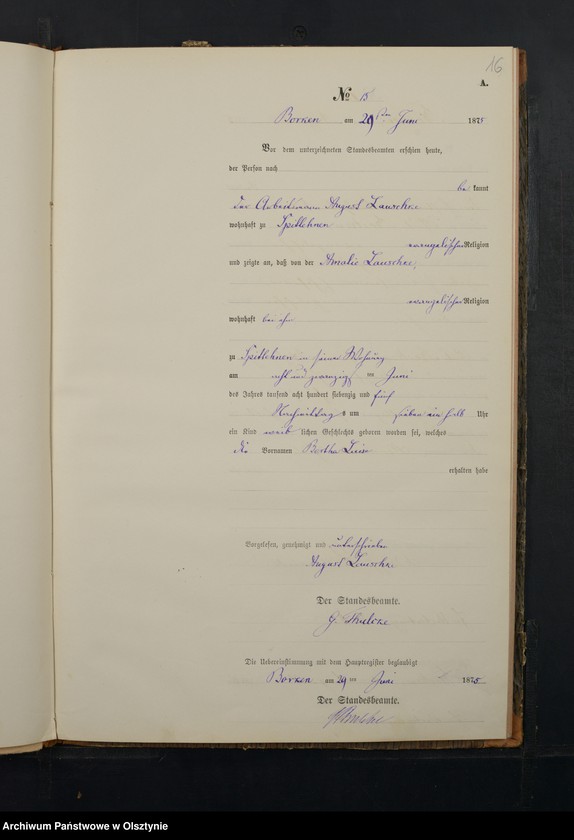 16
A.
No 15
Borken am 29ten Juni 1875
Vor dem unterzeichneten Standesbeamten erschien heute,
der Person nach
be kannt
der Arbeitsmann August Lauschke
wohnhaft zu Spitlehnen
evangelischer Religion
und zeigte an, daß von der Amalie Lauschke,
evangelischer Religion
wohnhaft bei ihm
zu Spitlehnen in seiner Wohnung
am acht und zwanzigsten Juni
des Jahres tausend acht hundert siebenzig und fünf
Nachmittags um sieben ein halb Uhr
ein Kind weib lichen Geschlechts geboren worden sei, welches
die Vornamen Bertha Luise
erhalten habe
Vorgelesen, genehmigt und unterschrieben
August Lauschke
Der Standesbeamte.
G.
Die Uebereinstimmung mit dem Hauptregister beglaubigt
Borken am 29ten Juni 1875
Der Standesbeamte.
Archiwum Państwowe w Olsztynie